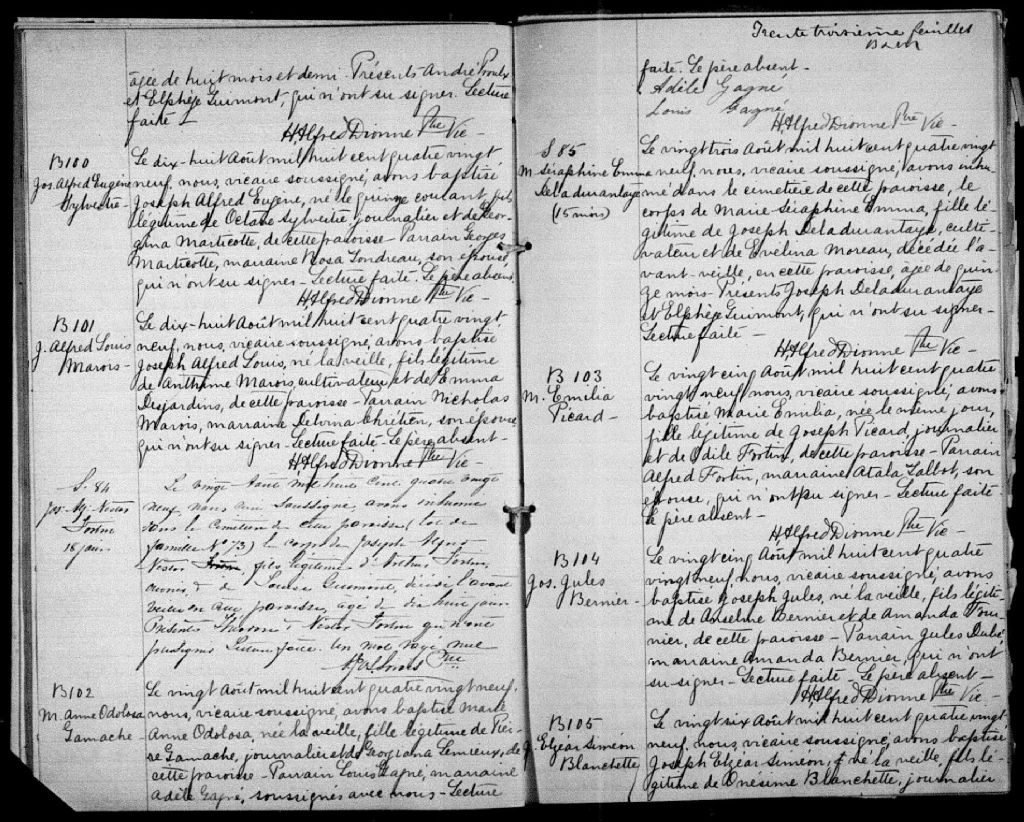 âgée de huit mois et demi. Présents André Proulx
et Elphège Guimont, qui n'ont su signer. Lecture
faite -
H. Alfred Dionne Ptre Vic -
B 100
Jos. Alfred Eugène
Sylvestre -
Le dix-huit Août mil huit cent quatre vingt
neuf, nous, vicaire soussigné, avons baptisé
Joseph Alfred Eugène, né le quinze courant, fils
légitime de Octave Sylvestre, journalier et de Geor-
gina Marticotte, de cette paroisse - Parrain Georges
Marticotte, marraine Rosa Gondreau, son épouse,
qui n'ont su signer - Lecture faite. Le père absent.
H. Alfred Dionne Ptre Vic -
B 101
J. Alfred Louis
Marois -
Le dix-huit Août mil huit cent quatre vingt
neuf, nous, vicaire soussigné, avons baptisé
Joseph Alfred Louis, né la veille, fils légitime
de Anthime Marois, cultivateur et de Emma
Desjardins, de cette paroisse - Parrain Nicholas
Marois, marraine Delvina Chrétien, son épouse,
qui n'ont su signer - Lecture faite - Le père absent -
H. Alfred Dionne Ptre Vic -
S. 84
Fortin
18 jours
Le vingt Août mil huit cent quatre vingt
neuf, nous curé soussigné, avons inhumé
dans le cimetière de cette paroisse (lot de
famille No 73) le corps de Joseph
Nestor, fils légitime d'Arthur Fortin,
et de Louise Guimont, décédé l'avant
veille en cette paroisse, âgé de dix huit jours
Présents Nestor Fortin qui n'ont
pu signer Lecture faite. Un mot rayé nul
Ptre
B 102
M. Anne Odolosa
Gamache -
Le vingt Août mil huit cent quatre vingt neuf,
nous, vicaire soussigné, avons baptisé Marie
Anne Odolosa, née la veille, fille légitime de Pier-
re Gamache, journalier et de Georgiana Lemieux, de
cette paroisse - Parrain Louis Gagné, marraine
Adèle Gagné, soussignés avec nous - Lecture
Trente troisième feuillet
faite. Le père absent -
Adèle Gagné
Louis Gagné
H. Alfred Dionne Ptre Vic -
S 85
M. Séraphine Emma
Deladurantaye
(15 mois)
Le vingt trois Août mil huit cent quatre vingt
neuf, nous, vicaire soussigné, avons inhu-
mé dans le cimetière de cette paroisse, le
corps de Marie Séraphine Emma, fille lé-
gitime de Joseph Deladurantaye, culti-
vateur et de Evelina Moreau, décédée l'a-
vant-veille, en cette paroisse, âgée de quin-
ze mois - Présents Joseph Deladurantaye
et Elphège Guimont, qui n'ont su signer -
Lecture faite -
H. Alfred Dionne Ptre Vic -
B 103
M. Emilia
Picard -
Le vingt cinq Août mil huit cent quatre
vingt neuf, nous, vicaire soussigné, avons
baptisé Marie Emilia, née le même jour,
fille légitime de Joseph Picard, journalier
et de Odile Fortin, de cette paroisse - Parrain
Alfred Fortin, marraine Atala Talbot, son
épouse, qui n'ont pu signer - Lecture faite -
Le père absent -
H. Alfred Dionne Ptre Vic -
B 104
Jos. Jules
Bernier -
Le vingt cinq Août mil huit cent quatre
vingt neuf, nous, vicaire soussigné, avons
baptisé Joseph Jules, né la veille, fils légiti-
me de Anselme Bernier et de Amanda Four-
nier, de cette paroisse - Parrain Jules Dubé,
marraine Amanda Bernier, qui n'ont
su signer - Lecture faite - Le père absent -
H. Alfred Dionne Ptre Vic -
B 105
Elzéar Siméon
Blanchette
Le vingt six Août mil huit cent quatre vingt
neuf, nous, vicaire soussigné, avons baptisé
Joseph Elzéar Siméon, né la veille, fils lé-
gitime de Onésime Blanchette, journalier